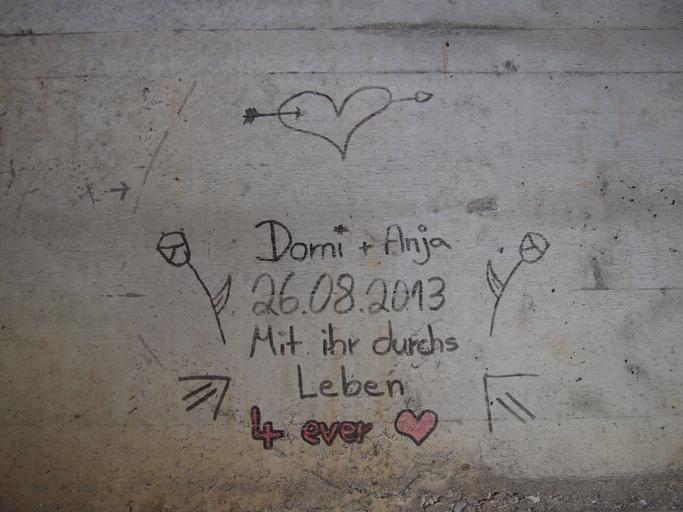 Domi + Anja
26.08.2013
Mit ihr durchs
Leben
4 ever